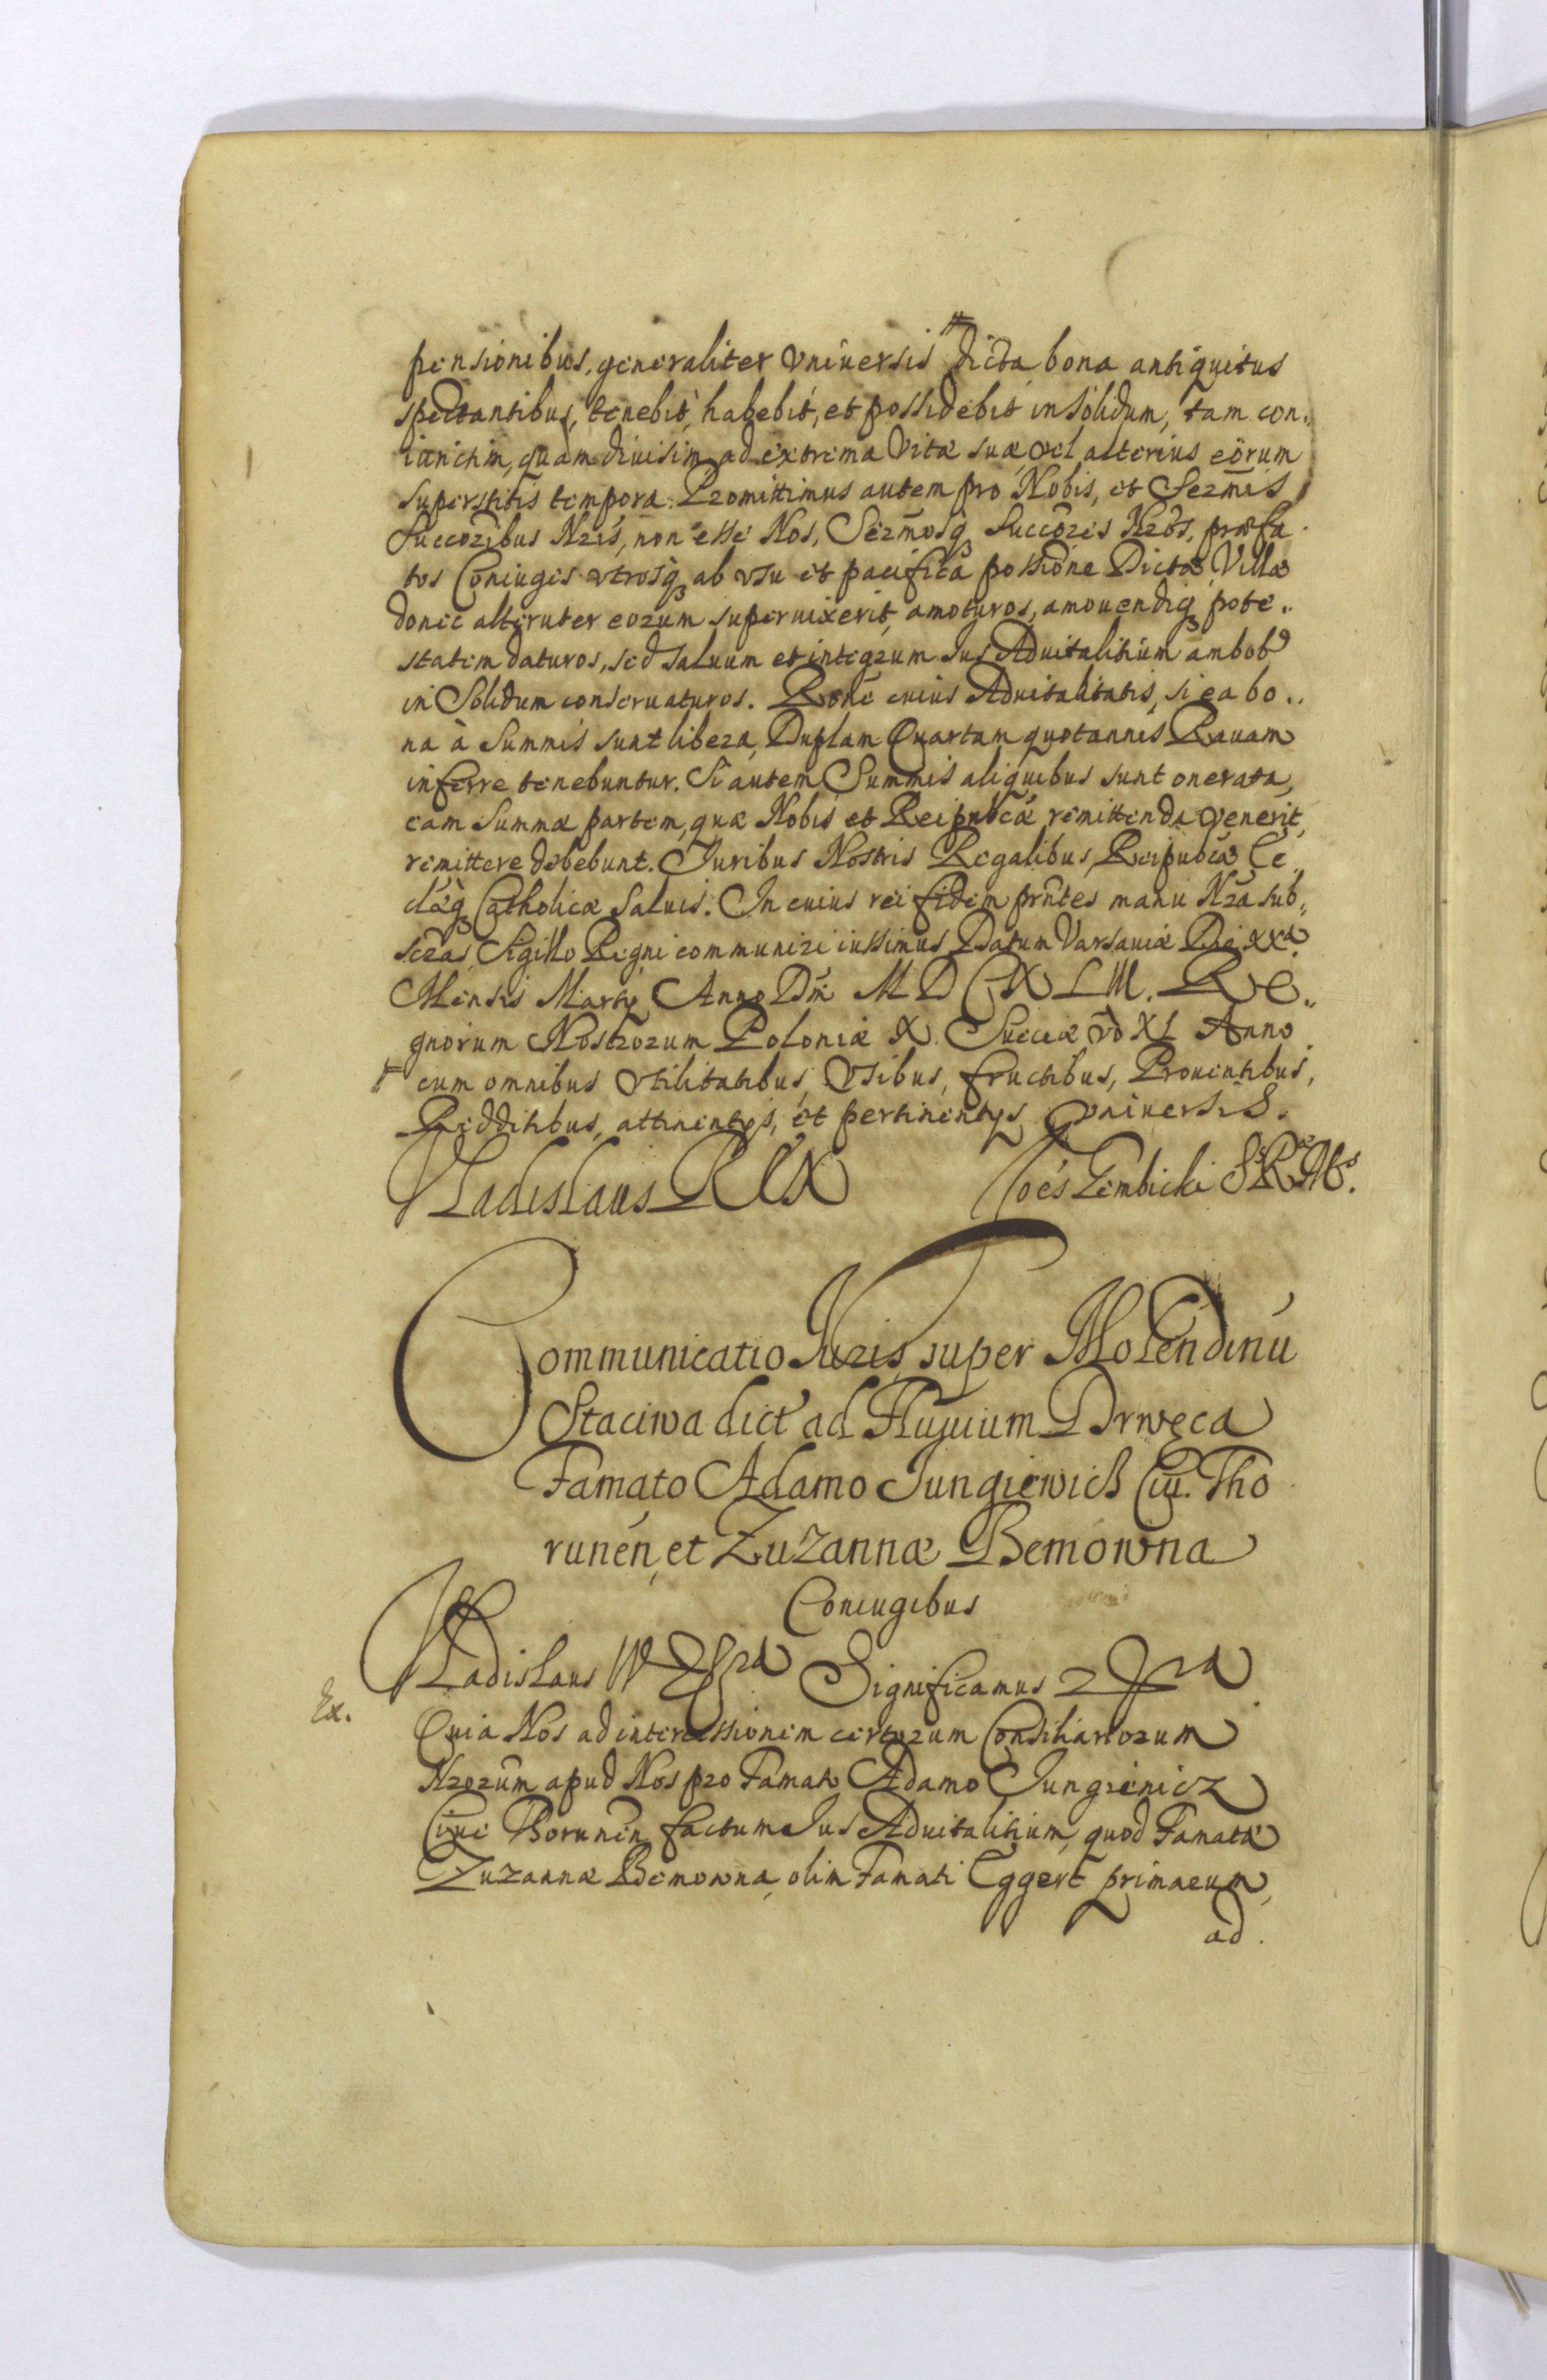 pensionibus, generaliter vniuersis # dicta bona antiquitus
spectantibus, tenebit, habebit, et possidebit in solidum, tam con„
iunctim, quam diuisim ad extrema Vitæ suæ, vel alterius eorum
superstitis tempora. Promittimus autem pro Nobis, et Sermis
Succoribus Nris, non esse Nos, Sermosq₃ Succores Nros, præfa
tos Coniuges vtrosq₃ ab vsu et pacifica possione Dictæ Villæ
donec alteruter eorum superuixerit, amoturos, amouendiq₃ pote„
statem daturos, sed saluum et integrum Ius Aduitalitium ambob9
in Solidum conseruaturos. Rone cuius Aduitalitatis, si ea bo„
na à Summis sunt libera, Duplam Quartam quotannis Rauam
inferre tenebuntur. Si autem Summis aliquibus sunt onerata,
eam Summæ partem, quæ Nobis et Reipubcæ remittenda venerit,
remittere debebunt. Iuribus Nostris Regalibus, Reipubcæ Ec
clæq₃ Catholicæ Saluis. In cuius rei fidem prntes manu Nra sub„
scras, Sigillo Regni communiri iussimus Datum Varsauiæ Die XXa
Mensis Martij Anno Dni M D C X L III. Re„
gnorum Nostrorum Poloniæ X. Sueciæ vo XI Anno
# cum omnibus vtilitatibus, vsibus, fructibus, Prouentibus,
Redditibus, attinentijs, et pertinentijs vniuersis.
Vladislaus REX Ioes Gembicki S R Mtis
Communicatio Iuris super Molendinu
Staciwa dict ad Fluuium Drwęca
Famato Adamo Iungiewich Ciu. Tho
runen, et Zuzannæ Bemowna
Coniugibus
Vladislaus IV &ra Significamus &ra
Ex.
Quia Nos ad intercessionem certorum Consiliariorum
Nrorum apud Nos pro Famato Adamo Iungiewicz
Ciue Thorunen factum Ius Aduitalitium, quod Famata
Zuzanna Bemowna, olim Famati Eggert primaeum,
ad